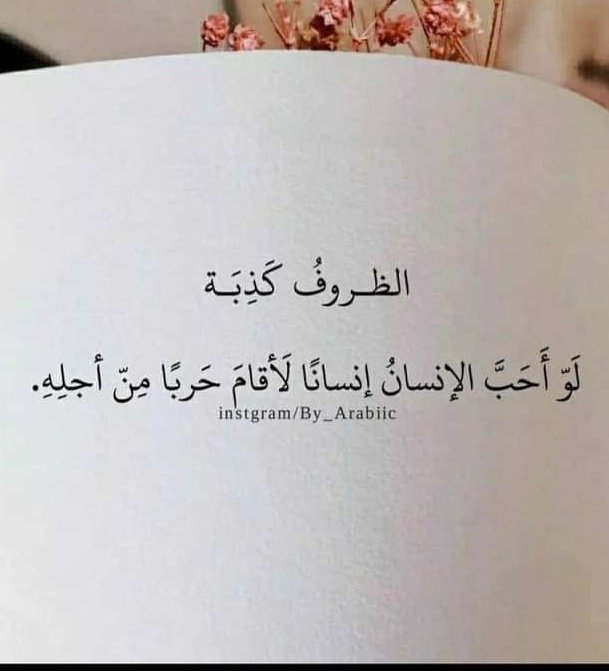 الظـروفُ كَذِبَـة
لَوّ أَحَبَّ الإنسانُ إنسانًا لَأقامَ حَربًا مِنّ أجلِهِ.
instgram/By_Arabiic